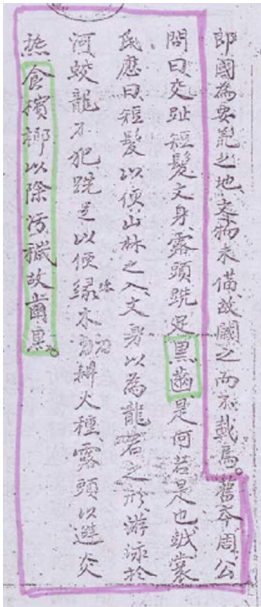 郎國為要荒之地文物未備故闕之而不載焉。舊本周公
問曰交趾短髮文身露頭跣足黑齒是何若是也越裳
氏應曰短髮以便山林之入文身以為龍君之形游泳於
河蛟龍不犯跣足以便緣木刀耕火種露頭以避炎
熱食檳榔以除污穢故齒黑。